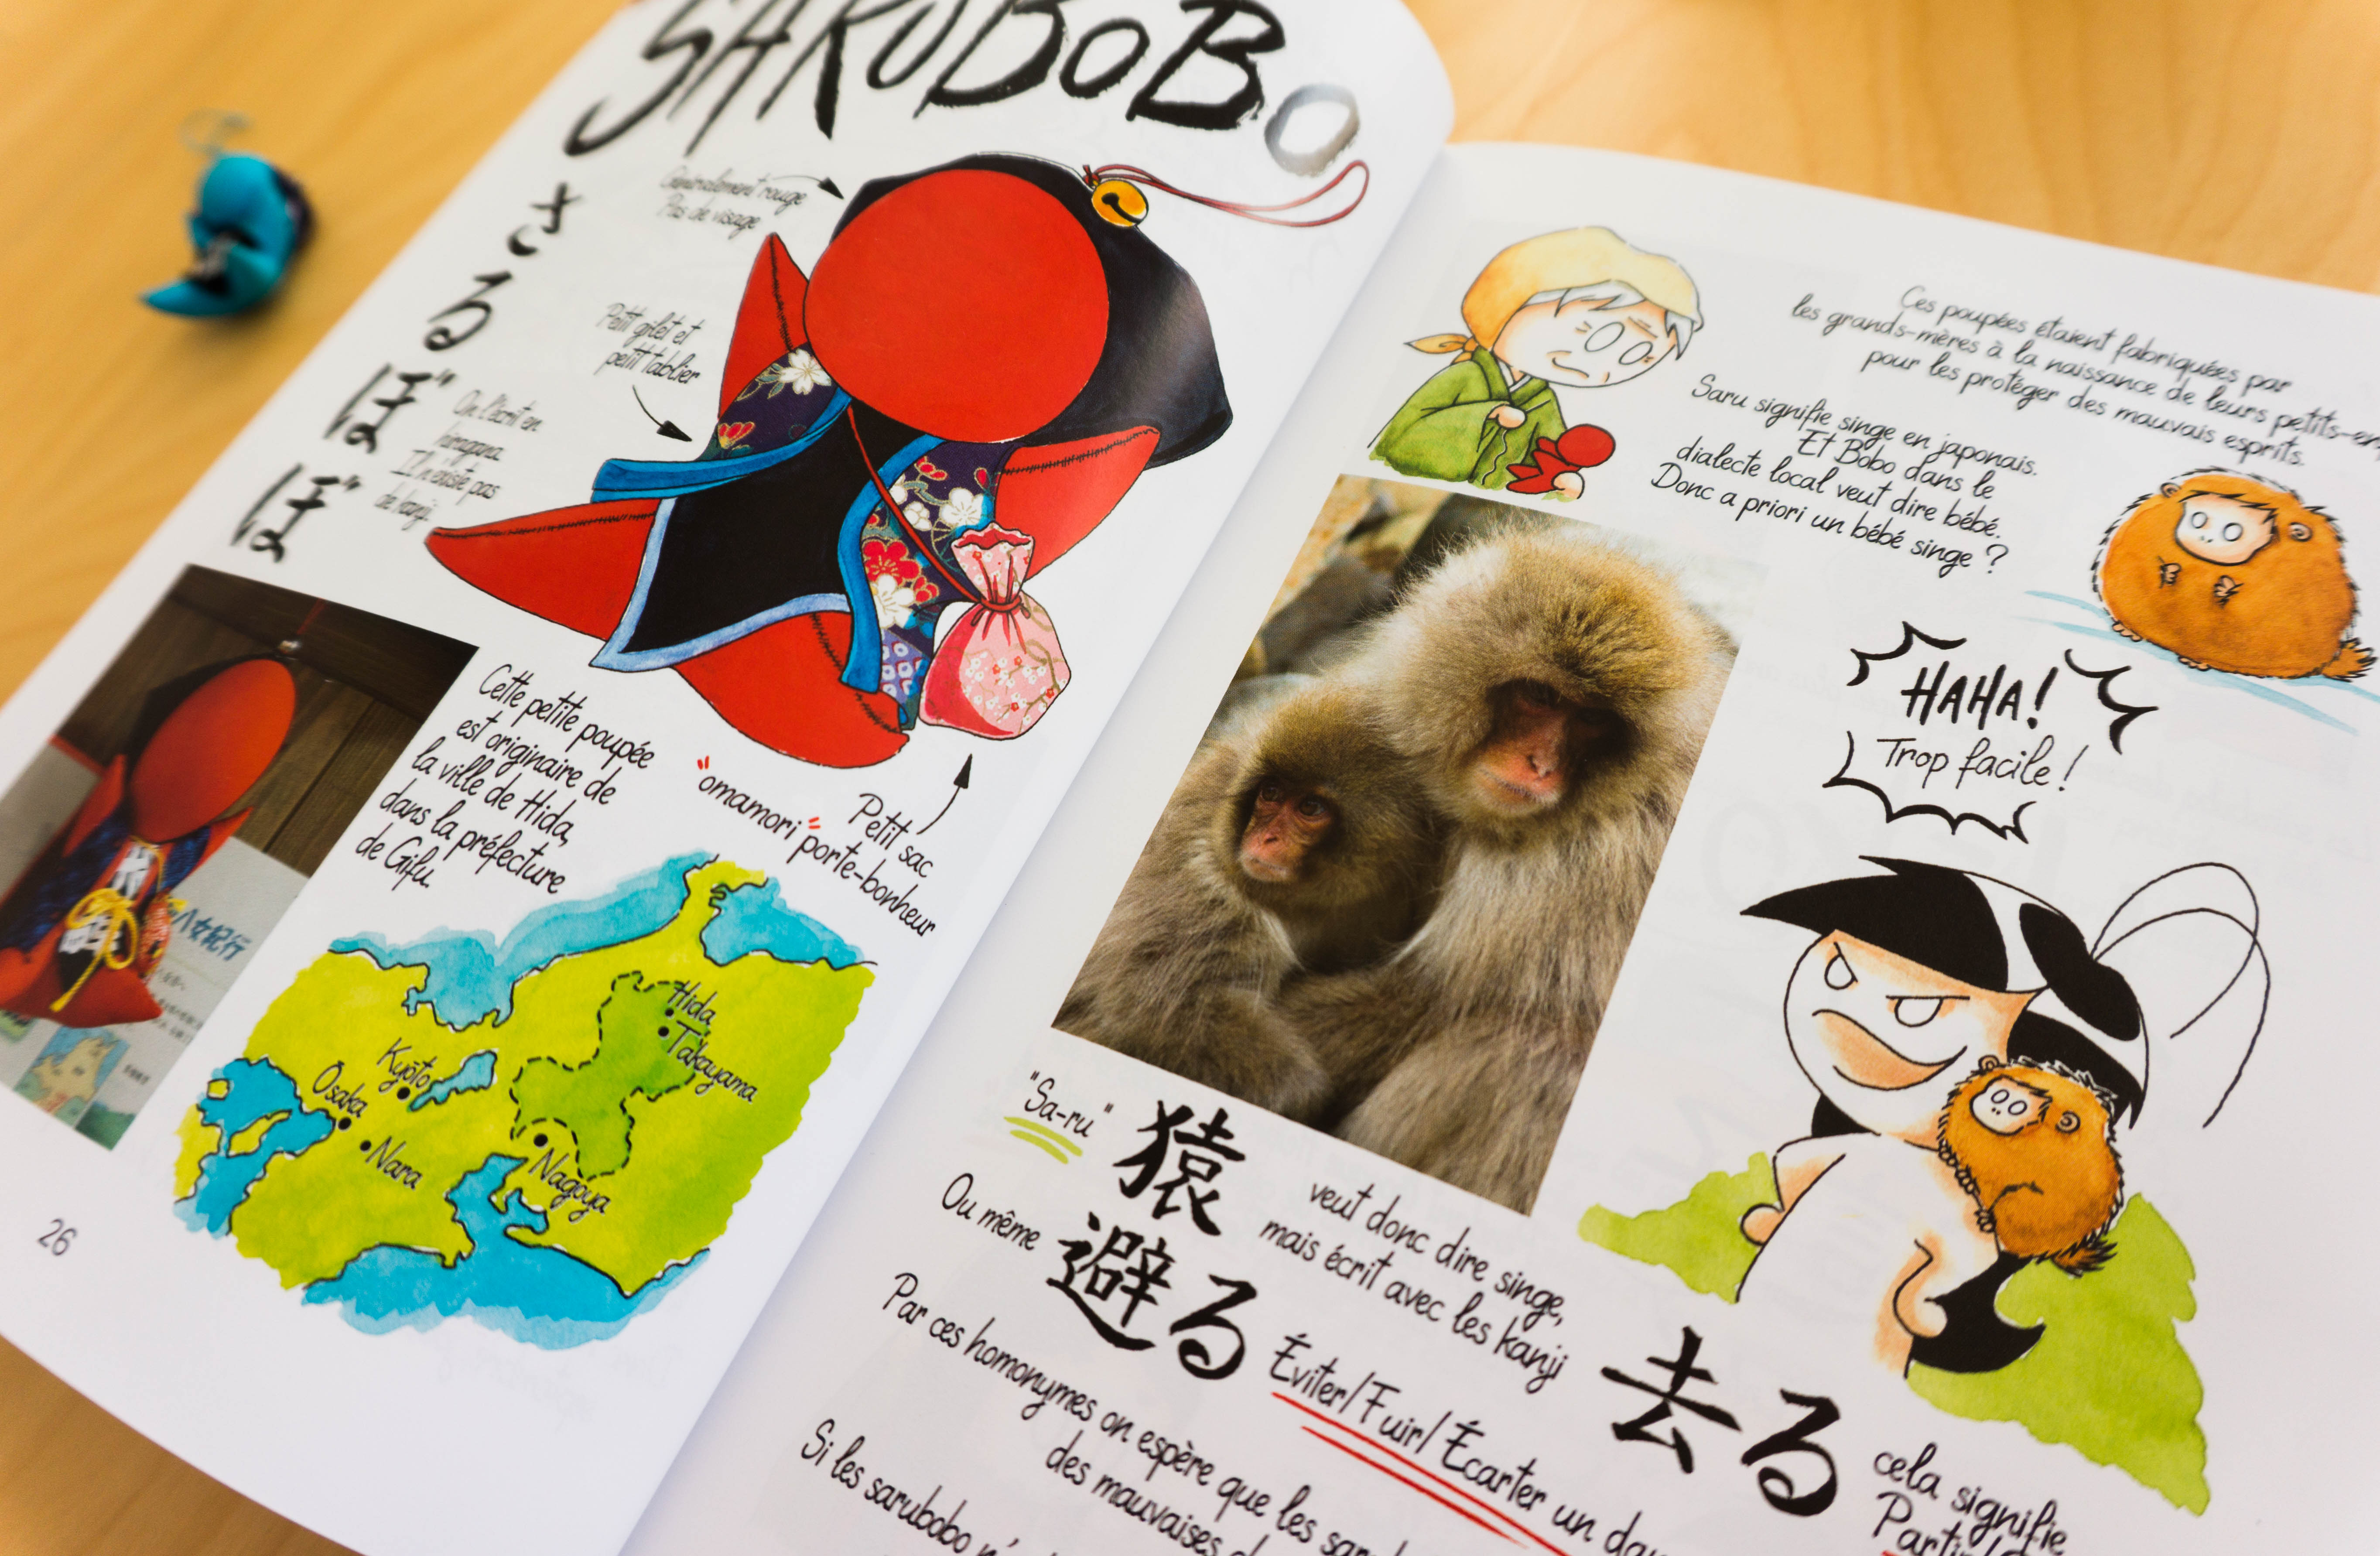 SARUBOBO
さるぼぼ
Généralement rouge
Pas de visage
Petit gilet et
petit tablier
On l'écrit en
hiragana
Il n'existe pas
de kanji
Cette petite poupée
est originaire de
la ville de Hida,
dans la préfecture
de Gifu.
Petit sac
"omamori" porte-bonheur
八女紀行
Hida
Takayama
Kyōto
Ōsaka
Nara
Nagoya
26
Ces poupées étaient fabriquées par
les grands-mères à la naissance de leurs petits-en
pour les protéger des mauvais esprits.
Saru signifie singe en japonais.
Et Bobo dans le
dialecte local veut dire bébé.
Donc a priori un bébé singe ?
HAHA!
Trop facile !
"Sa-ru"
猿
veut donc dire singe,
mais écrit avec les kanji
去る
cela signifie
Partir/
Ou même
避る
Éviter/Fuir/Écarter un dan
Par ces homonymes on espère que les saru
des mauvaises
Si les sarubobo n'